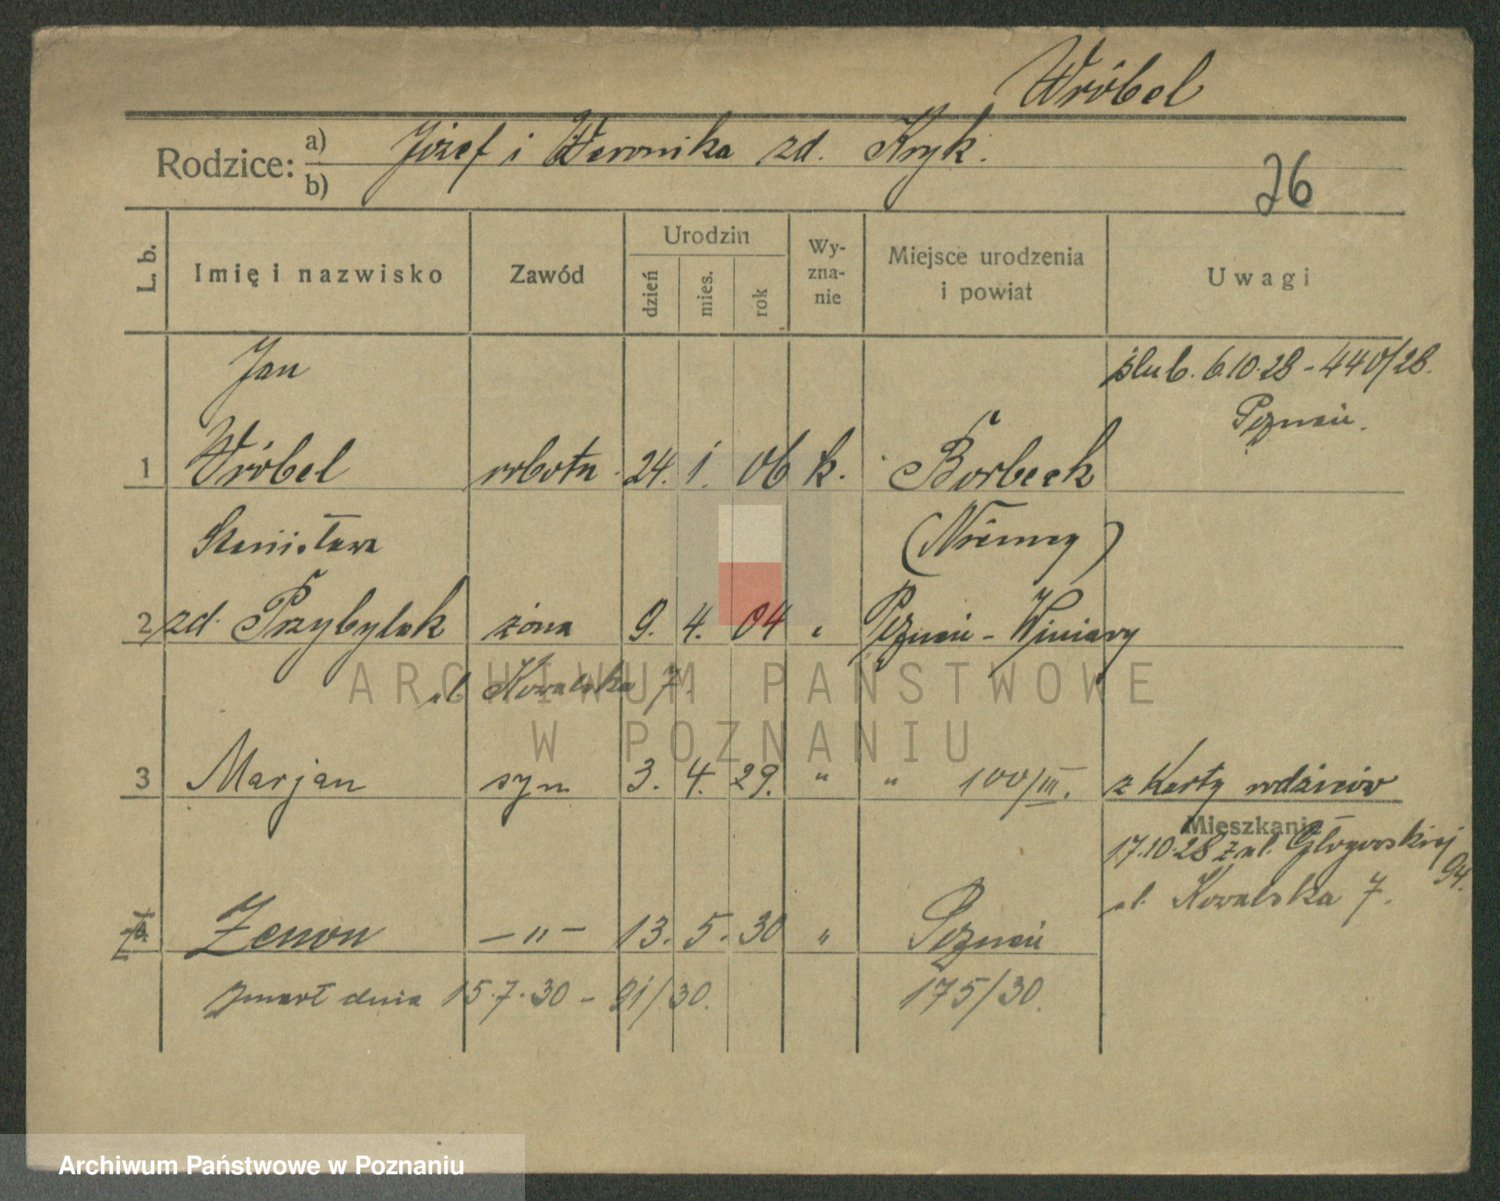 Wróbel
Rodzice: a) Józef i Weronika zd. Kryk.
b)
26
L. b. Imię i nazwisko Zawód Urodzin dzień mies. rok Wy-zna-nie Miejsce urodzenia i powiat Uwagi
Jan ślub. 6.10.28 - 440/28.
Poznań.
1 Wróbel robotn. 24. 1. 06 k. Borbeck
Stanisława (Niemcy)
2 zd. Przybylak żona 9. 4. 04 " Poznań - Winiary
ul. Kowalska 7.
3 Marjan syn 3. 4. 29. " " 100/III. z Karty rodziców
Mieszkanie
17.10.28 z ul. Głogowskiej 94.
ul. Kowalska 7.
4 Zenon — " — 13. 5. 30 " Poznań
zmarł dnia 15.7.30 - 91/30. 175/30.
ARCHIWUM PAŃSTWOWE
W POZNANIU
Archiwum Państwowe w Poznaniu